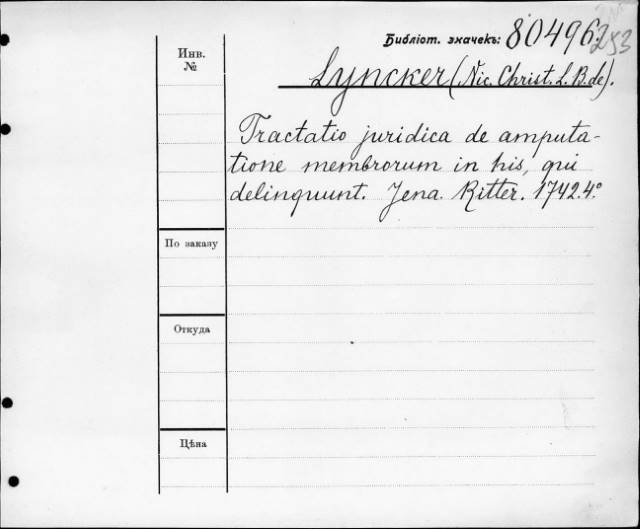 Библіот. значекъ: 804962
253
Инв.
№
Lyncker (Nic. Christ. L. B. de).
Tractatio juridica de amputa-
tione membrorum in his, qui
delinquunt. Jena. Ritter. 1742. 4°
По заказу
Откуда
Цѣна